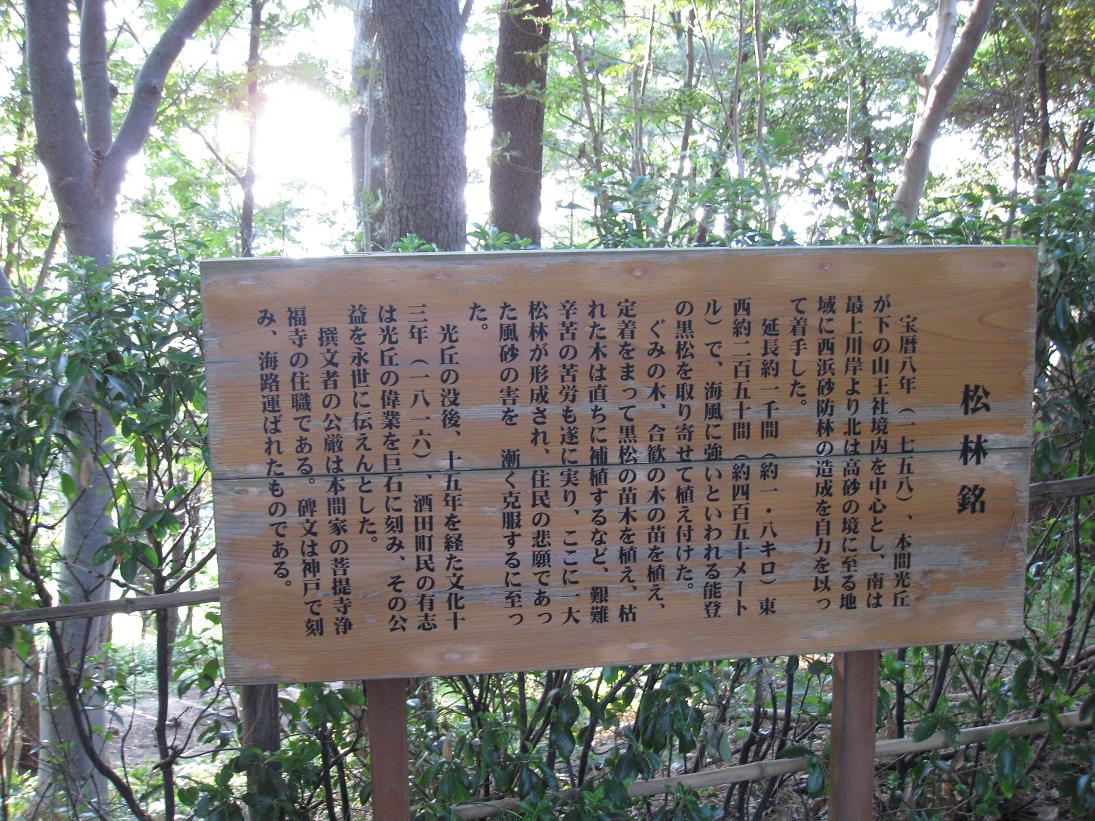 松林銘
宝暦八年(一七五八)、本間光丘
が下の山王社境内を中心とし、南は
最上川岸より北は高砂の境に至る地
域に西浜砂防林の造成を自力を以っ
て着手した。
延長約一千間(約一・八キロ)東
西約二百五十間(約四百五十メート
ル)で、海風に強いといわれる能登
の黒松を取り寄せて植え付けた。
ぐみの木、合歓の木の苗を植え、
定着をまって黒松の苗木を植え、枯
れた木は直ちに補植するなど、艱難
辛苦の苦労も遂に実り、ここに一大
松林が形成され、住民の悲願であっ
た風砂の害を 漸く克服するに至っ
た。
光丘の没後、十五年を経た文化十
三年(一八一六)、酒田町民の有志
は光丘の偉業を巨石に刻み、その公
益を永世に伝えんとした。
撰文者の公厳は本間家の菩提寺浄
福寺の住職である。碑文は神戸で刻
み、海路運ばれたものである。